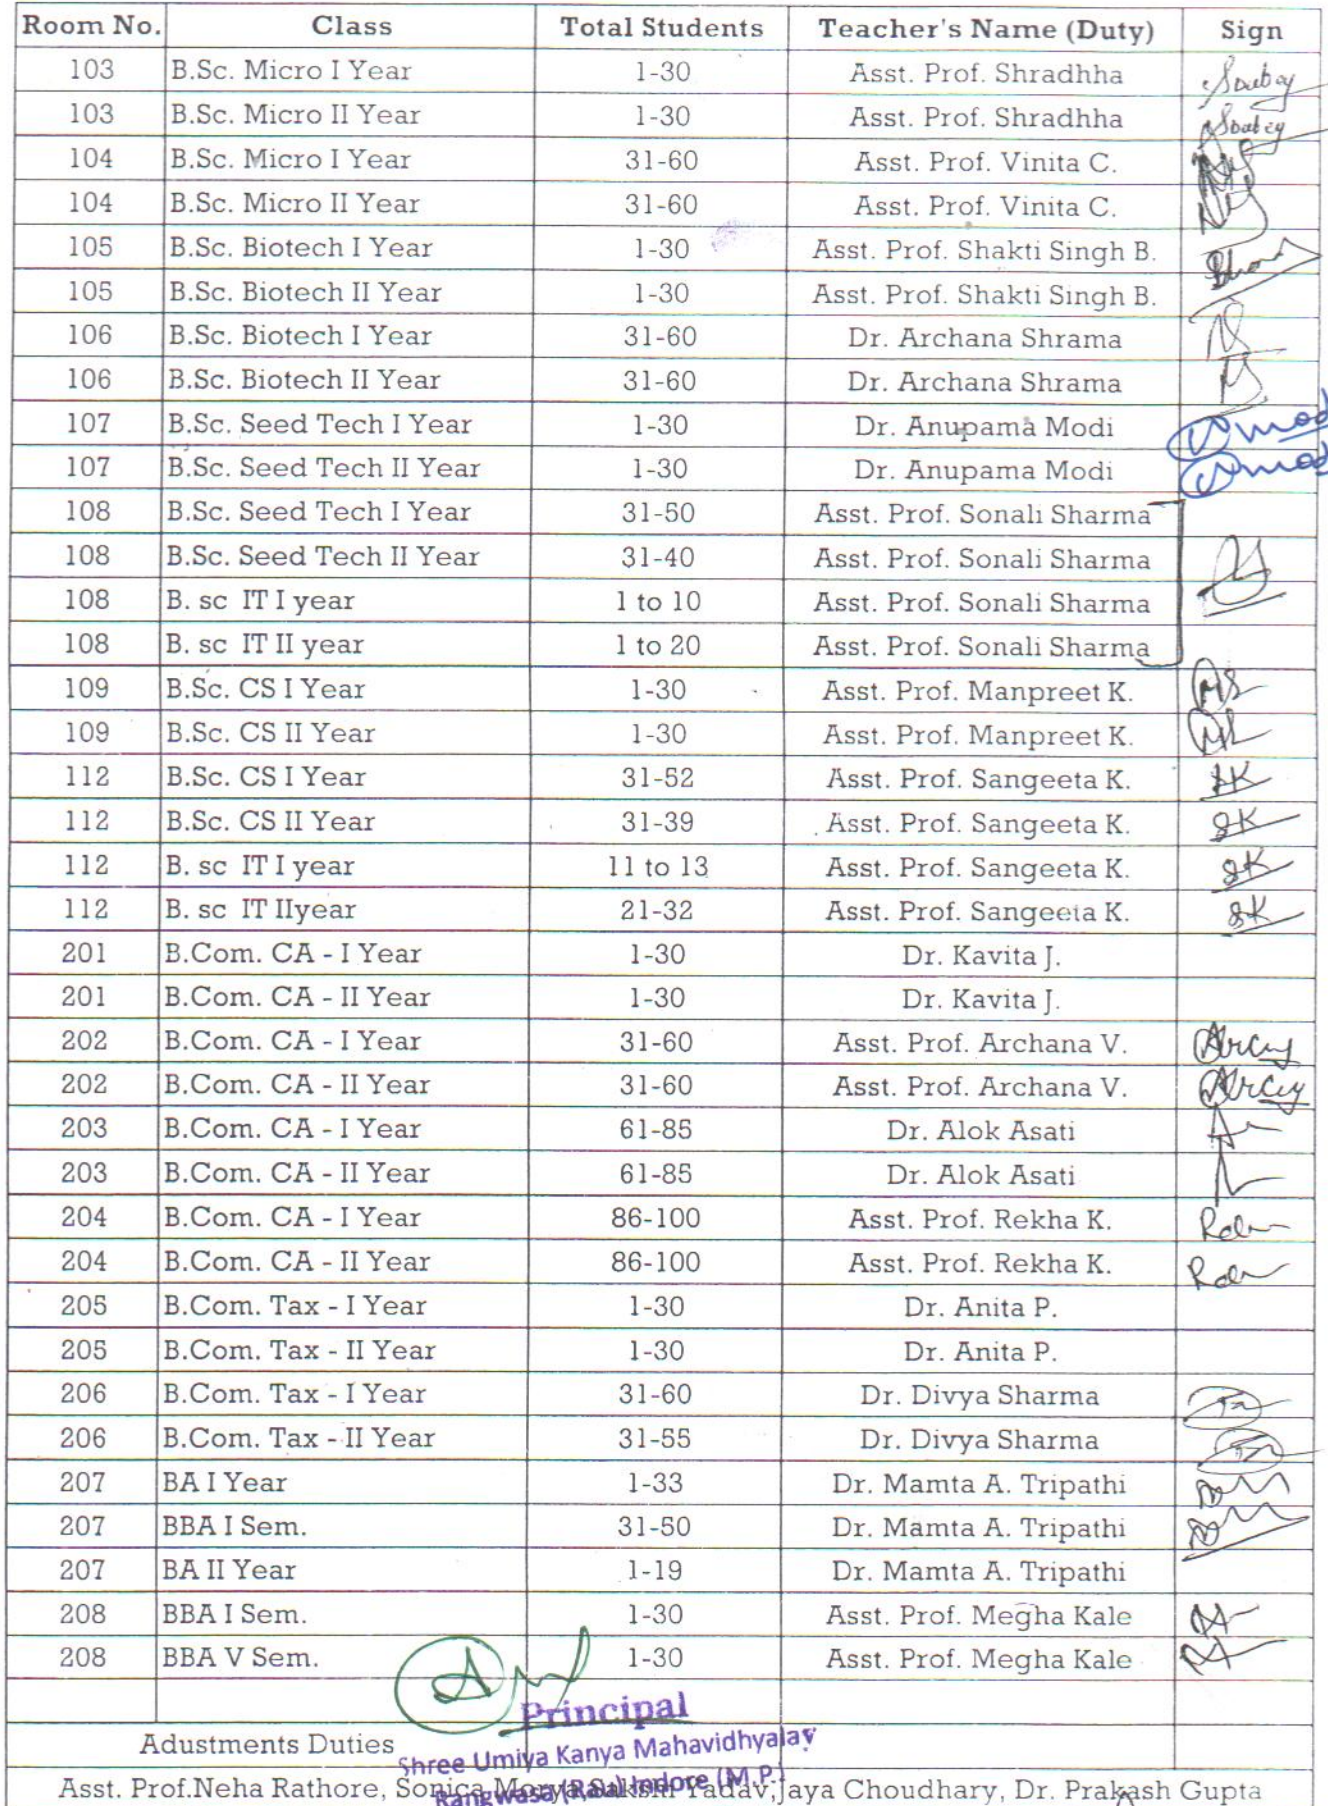 Room No. Class Total Students Teacher's Name (Duty) Sign
103 B.Sc. Micro I Year 1-30 Asst. Prof. Shradhha
103 B.Sc. Micro II Year 1-30 Asst. Prof. Shradhha
104 B.Sc. Micro I Year 31-60 Asst. Prof. Vinita C.
104 B.Sc. Micro II Year 31-60 Asst. Prof. Vinita C.
105 B.Sc. Biotech I Year 1-30 Asst. Prof. Shakti Singh B.
105 B.Sc. Biotech II Year 1-30 Asst. Prof. Shakti Singh B.
106 B.Sc. Biotech I Year 31-60 Dr. Archana Shrama
106 B.Sc. Biotech II Year 31-60 Dr. Archana Shrama
107 B.Sc. Seed Tech I Year 1-30 Dr. Anupama Modi
107 B.Sc. Seed Tech II Year 1-30 Dr. Anupama Modi
108 B.Sc. Seed Tech I Year 31-50 Asst. Prof. Sonali Sharma
108 B.Sc. Seed Tech II Year 31-40 Asst. Prof. Sonali Sharma
108 B. sc IT I year 1 to 10 Asst. Prof. Sonali Sharma
108 B. sc IT II year 1 to 20 Asst. Prof. Sonali Sharma
109 B.Sc. CS I Year 1-30 Asst. Prof. Manpreet K.
109 B.Sc. CS II Year 1-30 Asst. Prof. Manpreet K.
112 B.Sc. CS I Year 31-52 Asst. Prof. Sangeeta K. SK
112 B.Sc. CS II Year 31-39 Asst. Prof. Sangeeta K. SK
112 B. sc IT I year 11 to 13 Asst. Prof. Sangeeta K. SK
112 B. sc IT IIyear 21-32 Asst. Prof. Sangeeta K. SK
201 B.Com. CA - I Year 1-30 Dr. Kavita J.
201 B.Com. CA - II Year 1-30 Dr. Kavita J.
202 B.Com. CA - I Year 31-60 Asst. Prof. Archana V.
202 B.Com. CA - II Year 31-60 Asst. Prof. Archana V.
203 B.Com. CA - I Year 61-85 Dr. Alok Asati
203 B.Com. CA - II Year 61-85 Dr. Alok Asati
204 B.Com. CA - I Year 86-100 Asst. Prof. Rekha K.
204 B.Com. CA - II Year 86-100 Asst. Prof. Rekha K.
205 B.Com. Tax - I Year 1-30 Dr. Anita P.
205 B.Com. Tax - II Year 1-30 Dr. Anita P.
206 B.Com. Tax - I Year 31-60 Dr. Divya Sharma
206 B.Com. Tax - II Year 31-55 Dr. Divya Sharma
207 BA I Year 1-33 Dr. Mamta A. Tripathi
207 BBA I Sem. 31-50 Dr. Mamta A. Tripathi
207 BA II Year 1-19 Dr. Mamta A. Tripathi
208 BBA I Sem. 1-30 Asst. Prof. Megha Kale
208 BBA V Sem. 1-30 Asst. Prof. Megha Kale
Principal
Adustments Duties
Shree Umiya Kanya Mahavidhyalay
Rangwasa (Rau) Indore (M.P.)
Asst. Prof.Neha Rathore, Sonica Morya, Sakshi Yadav,Jaya Choudhary, Dr. Prakash Gupta